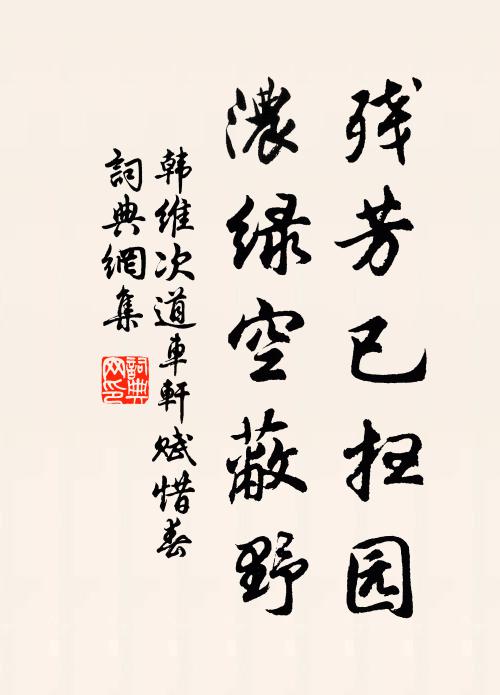 残芳已扫园
濃绿空蔽野
韩维次道車軒赋惜春
詞典網集
詞典
网印